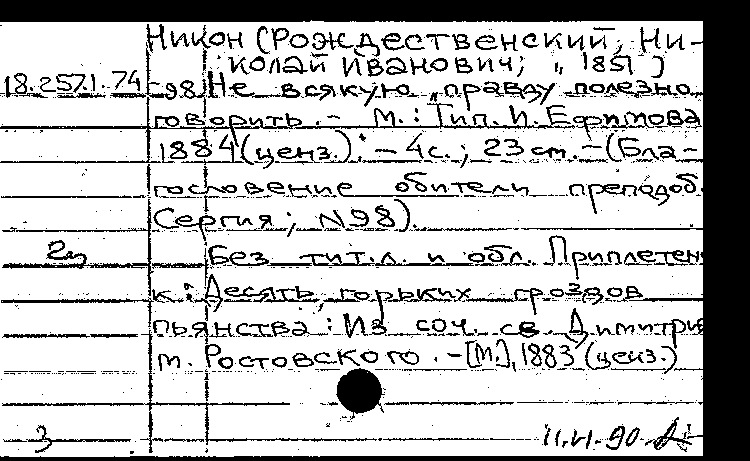 Никон (Рождественский, Ни-
колай Иванович; 1851 )
18.257.1.74
-98 Не всякую правду полезно
говорить. - М.: Тип. И. Ефимова
1884 (ценз.). - 4с.; 23 см. - (Бла-
гословение обители преподоб.
Сергия; N98).
2э
Без тит.л. и обл. Приплетен
к: Десять горьких гроздов
пьянства: Из соч. св. Димитрия
м. Ростовского. - [М.], 1883 (ценз.)
3
11.VI.90